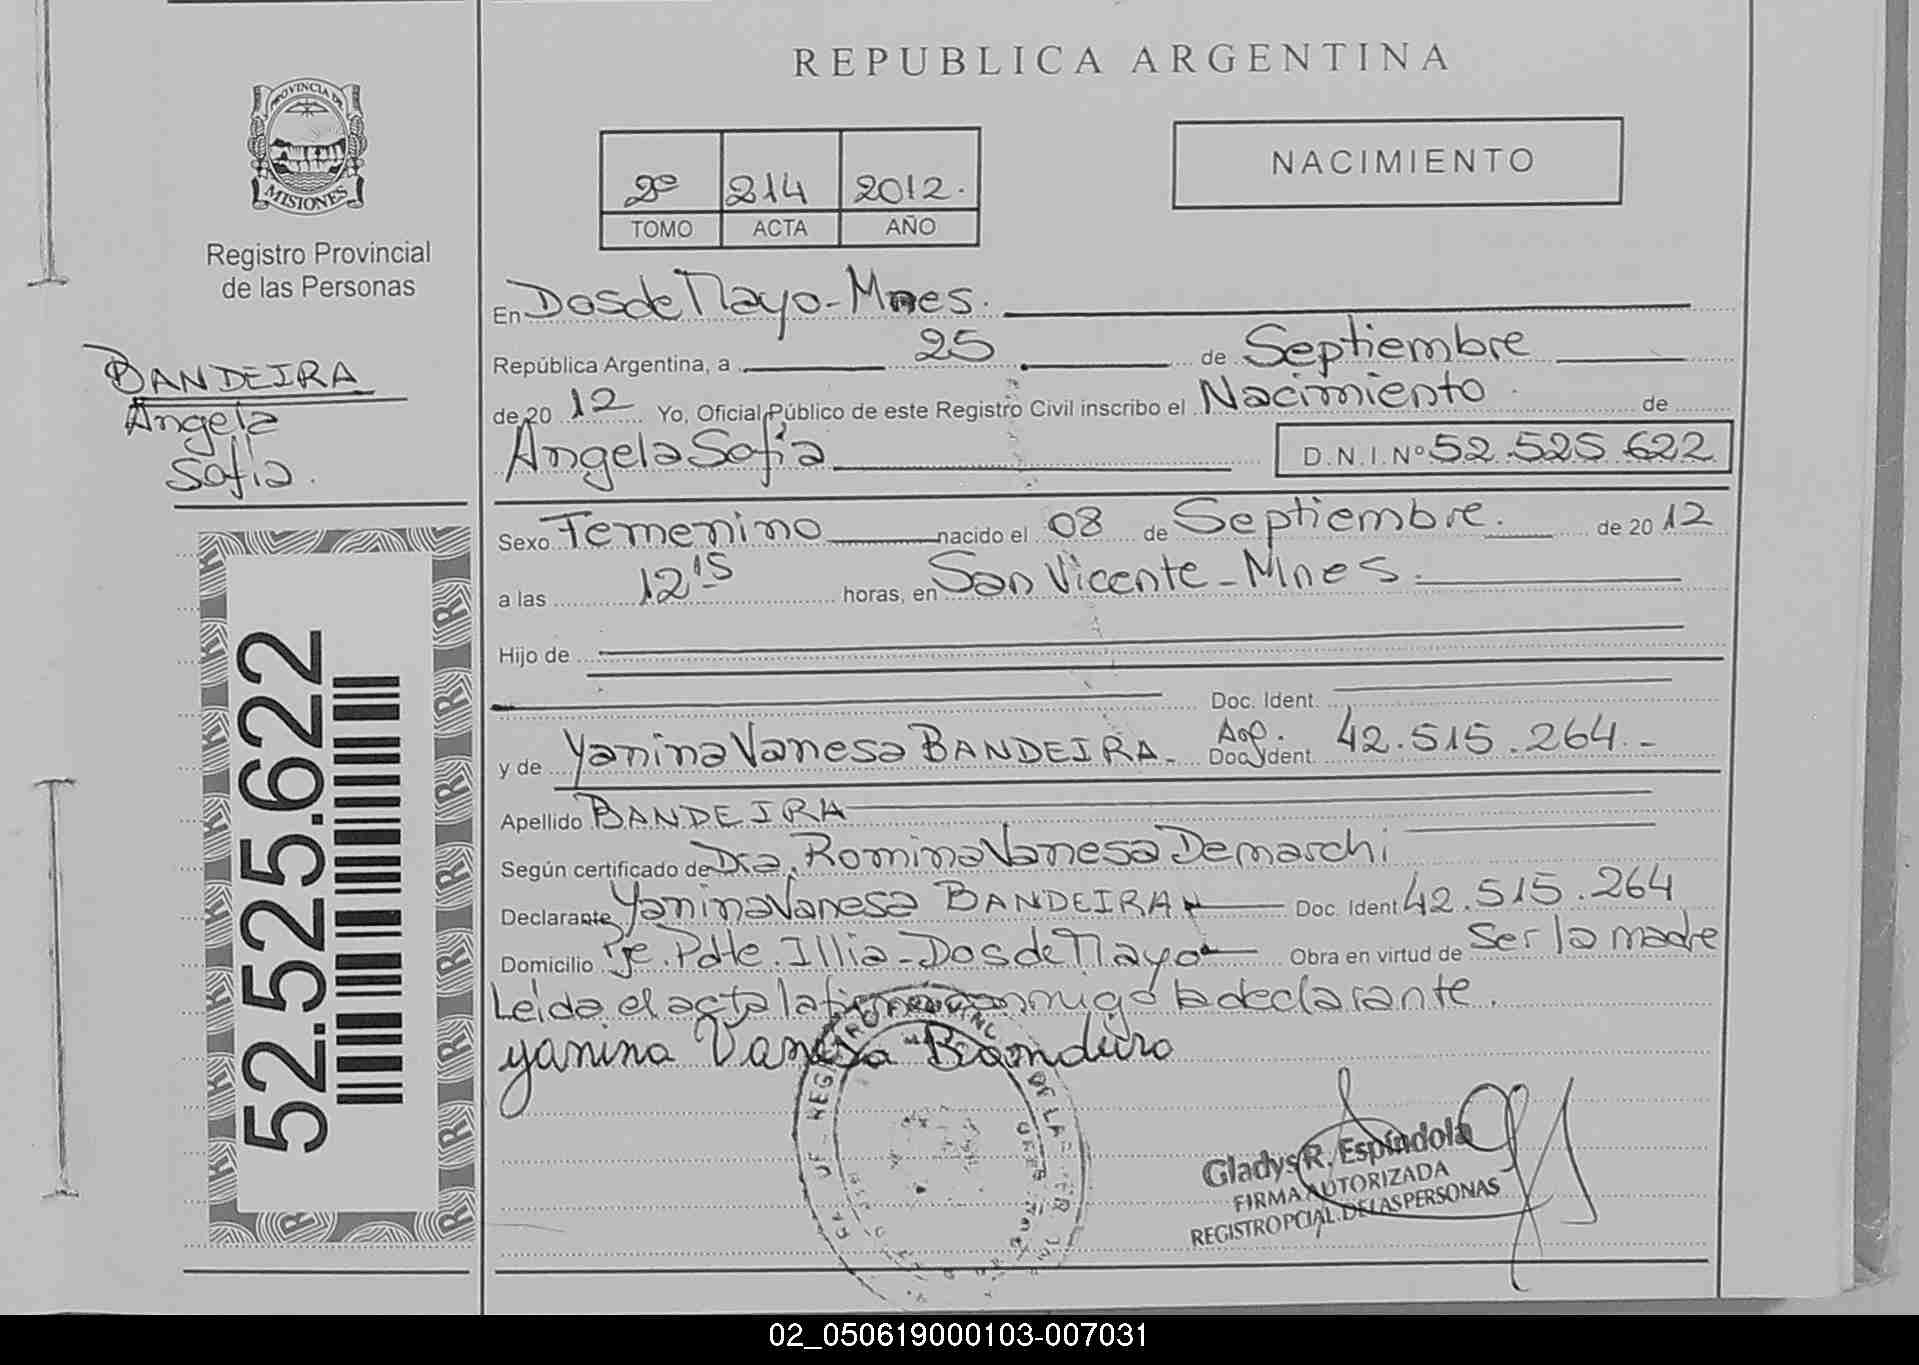 REPUBLICA ARGENTINA
PROVINCIA DE
MISIONES
Registro Provincial
de las Personas
BANDEIRA
Angela
Sofía.
52.525.622
2º 214 2012.
TOMO ACTA AÑO
NACIMIENTO
En Dos de Mayo - Mnes.
República Argentina, a 25 de Septiembre
de 20 12 Yo, Oficial Público de este Registro Civil inscribo el Nacimiento de
Angela Sofía D.N.I.Nº 52.525.622
Sexo Femenino nacido el 08 de Septiembre. de 20 12
a las 12 15 horas, en San Vicente - Mnes.
Hijo de
Doc. Ident.
y de Yanina Vanesa BANDEIRA. Arg. Doc. Ident. 42.515.264.-
Apellido BANDEIRA
Según certificado de Dra. Romina Vanesa Demarchi
Declarante Yanina Vanesa BANDEIRA Doc. Ident 42.515.264
Domicilio Pje. Pdte. Illia - Dos de Mayo Obra en virtud de Ser la madre
Leída el acta la firma conmigo la declarante.
yanina Vanesa Bandeira
Gladys R. Espíndola
FIRMA AUTORIZADA
REGISTRO PCIAL. DE LAS PERSONAS
02_050619000103-007031